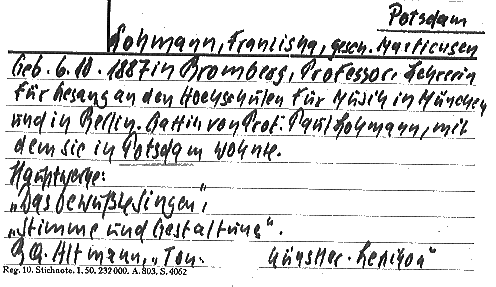 Potsdam
Lohmann, Franziska, gesch. Martienßen
Geb. 6.10.1887 in Bromberg, Professor, Lehrerin
für Gesang an den Hochschulen für Müsik in München
und in Berlin. Gattin von Prof. Paul Lohmann, mit
dem sie in Potsdam wohnte.
Hauptwerke:
„Das bewußte Singen",
„Stimme und Gestaltung".
Altmann, „Ton-
künstler-Lexikon"
Reg. 10. Stichnote. 1. 50. 232000. A. 803. S. 4062